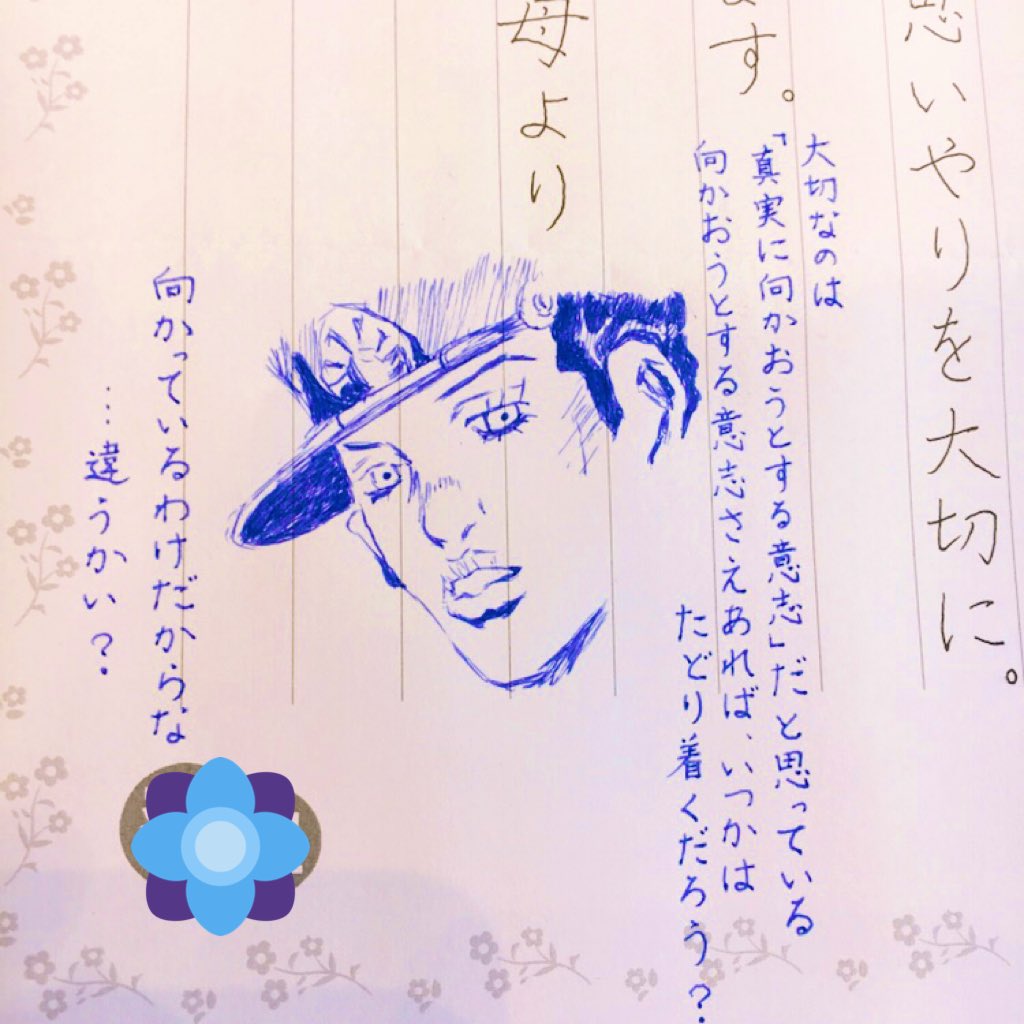 思いやりを大切に。
ます。
母より
大切なのは
「真実に向かおうとする意志」だと思っている
向かおうとする意志さえあれば、いつかは
たどり着くだろう？
向かっているわけだからな
…違うかい？